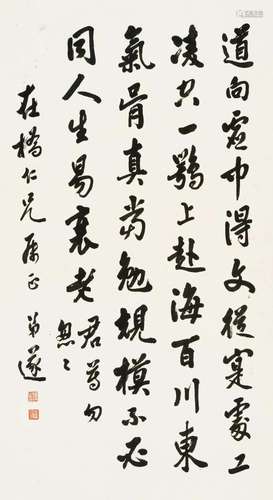 道向虛中得文從寔處工
凌空一鶚上赴海百川東
氣骨真當勉規模不必
同人生易衰老君等勿
怱〻
在橋仁兄屬正 弟